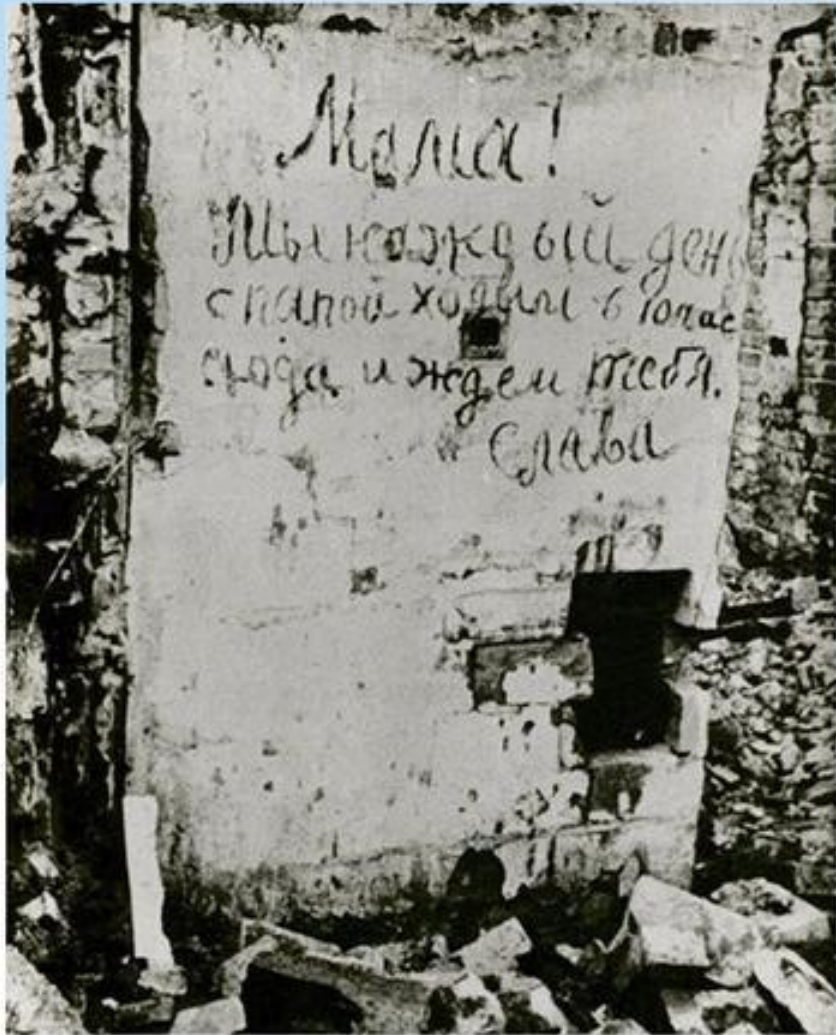 Мама!
Мы каждый день
с папой ходим в 10 час
сюда и ждем тебя.
Слава